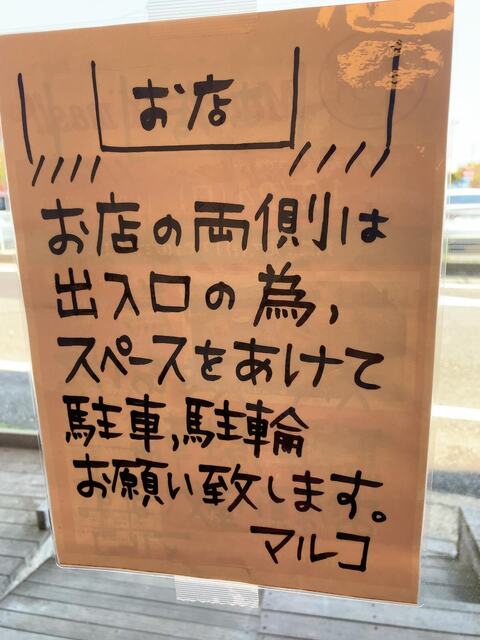 お店
お店の両側は
出入口の為,
スペースをあけて
駐車,駐輪
お願い致します。
マルコ